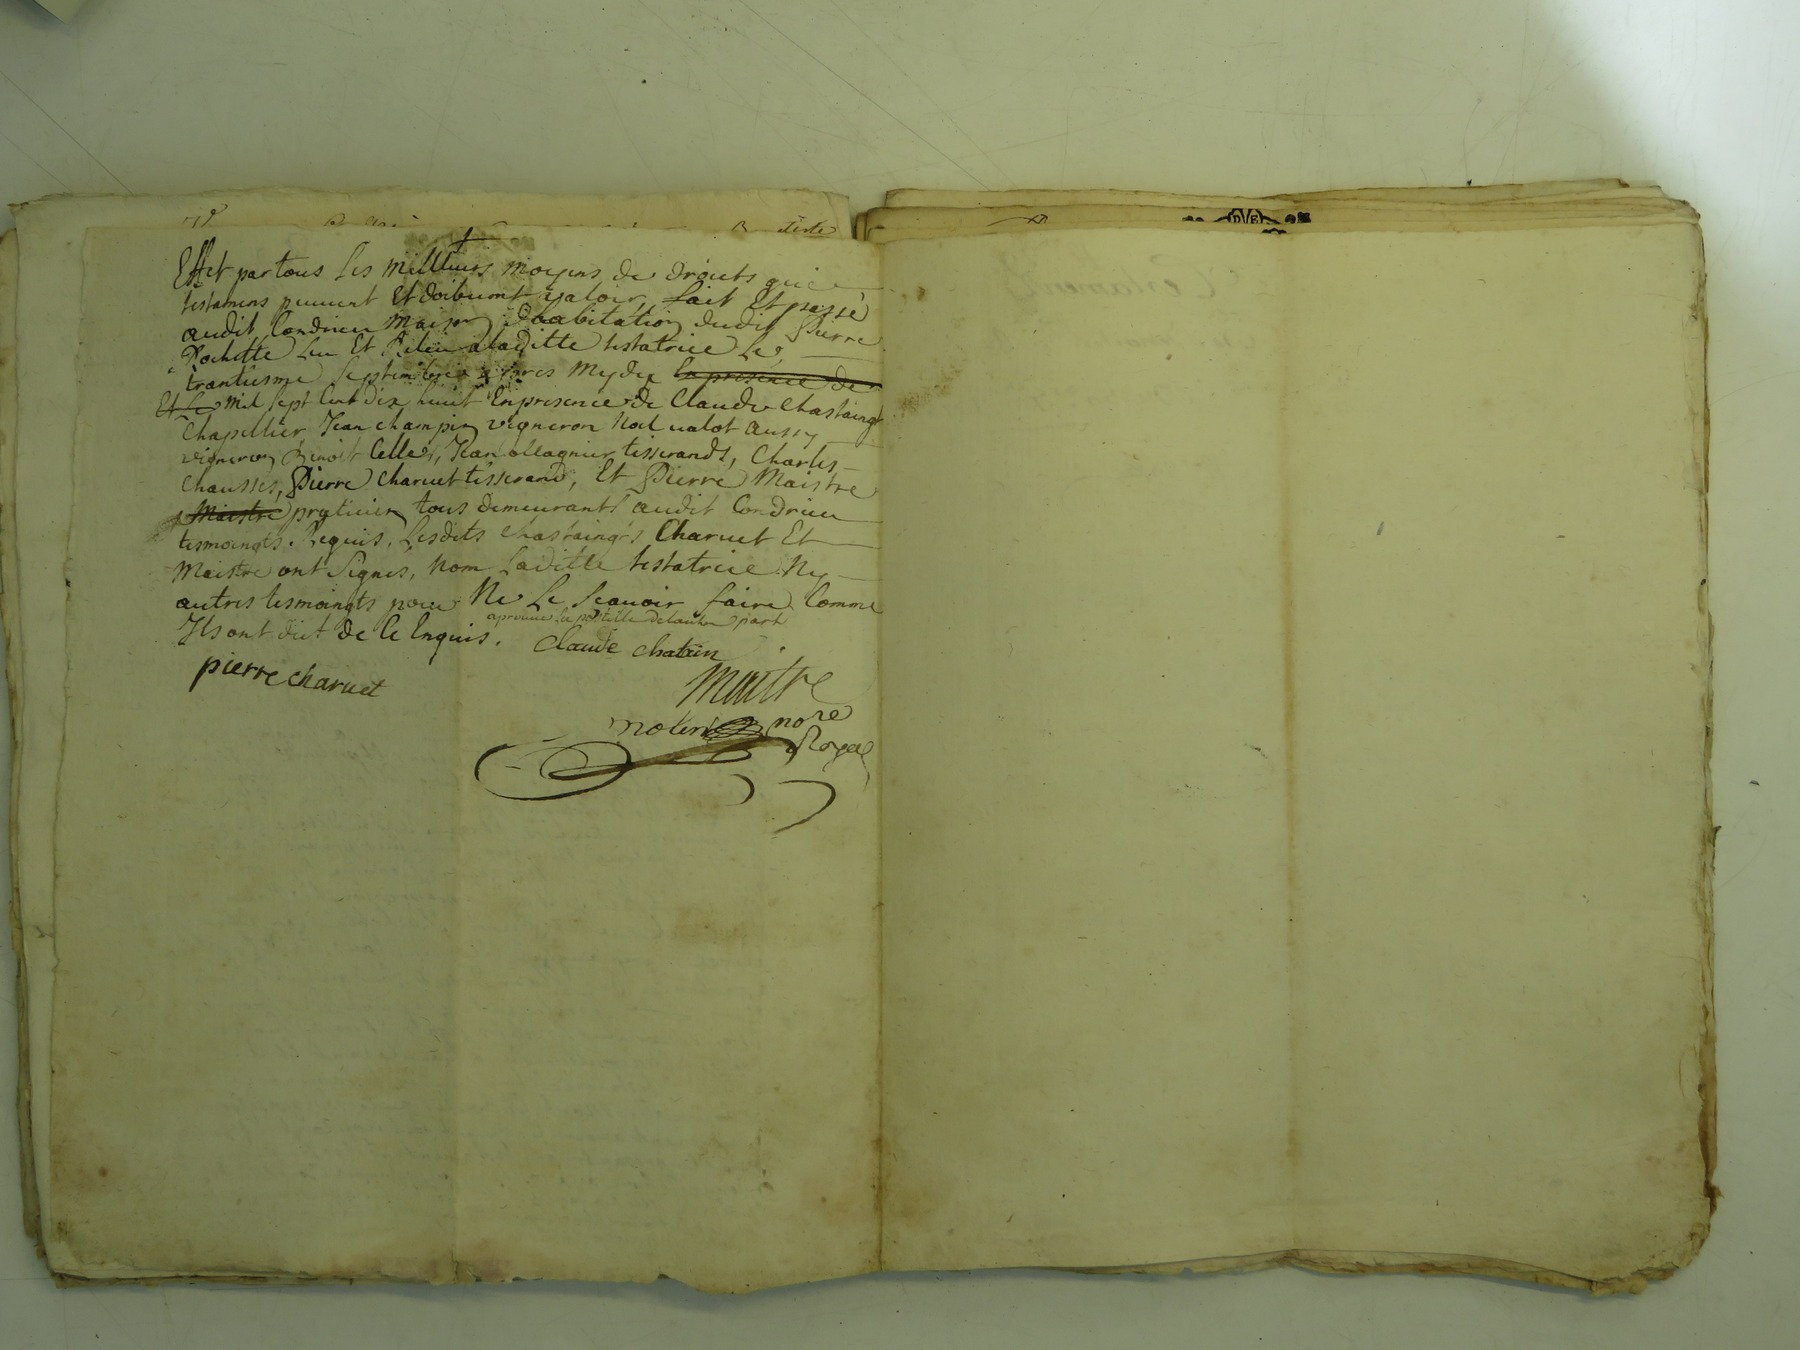 Effet par tous les meillieurs moyens de droicts que
testamens peuuent Et doibuent ualoir, fait Et passé
audit Condrieu Maison d'habitation dudit Pierre
Rochette leu Et Releu a laditte testatrice Le
trantiesme septembre apres Mydy En presence de
Et Le mil sept Cent dix huit En presence de Claude Chastaing
Chapellier Jean champin vigneron Noel ualot aussy
vigneron Benoit Celler, Jean ollagnier tisserands, Charles
Chausses, Pierre Charuet tisserand, Et Pierre Maistre
Maistre praticien tous demeurants audit Condrieu
tesmoingts Requis, Lesdits Chastaings Charuet Et
Maistre ont Signes, Nom Laditte testatrice Ny
autres tesmoingts pour Ne Le Scauoir faire Comme
aprouue la postille delautre part
Ils ont dit de Ce Enquis.
Claude chatain
pierre charuet
Maitre
nore
Royal